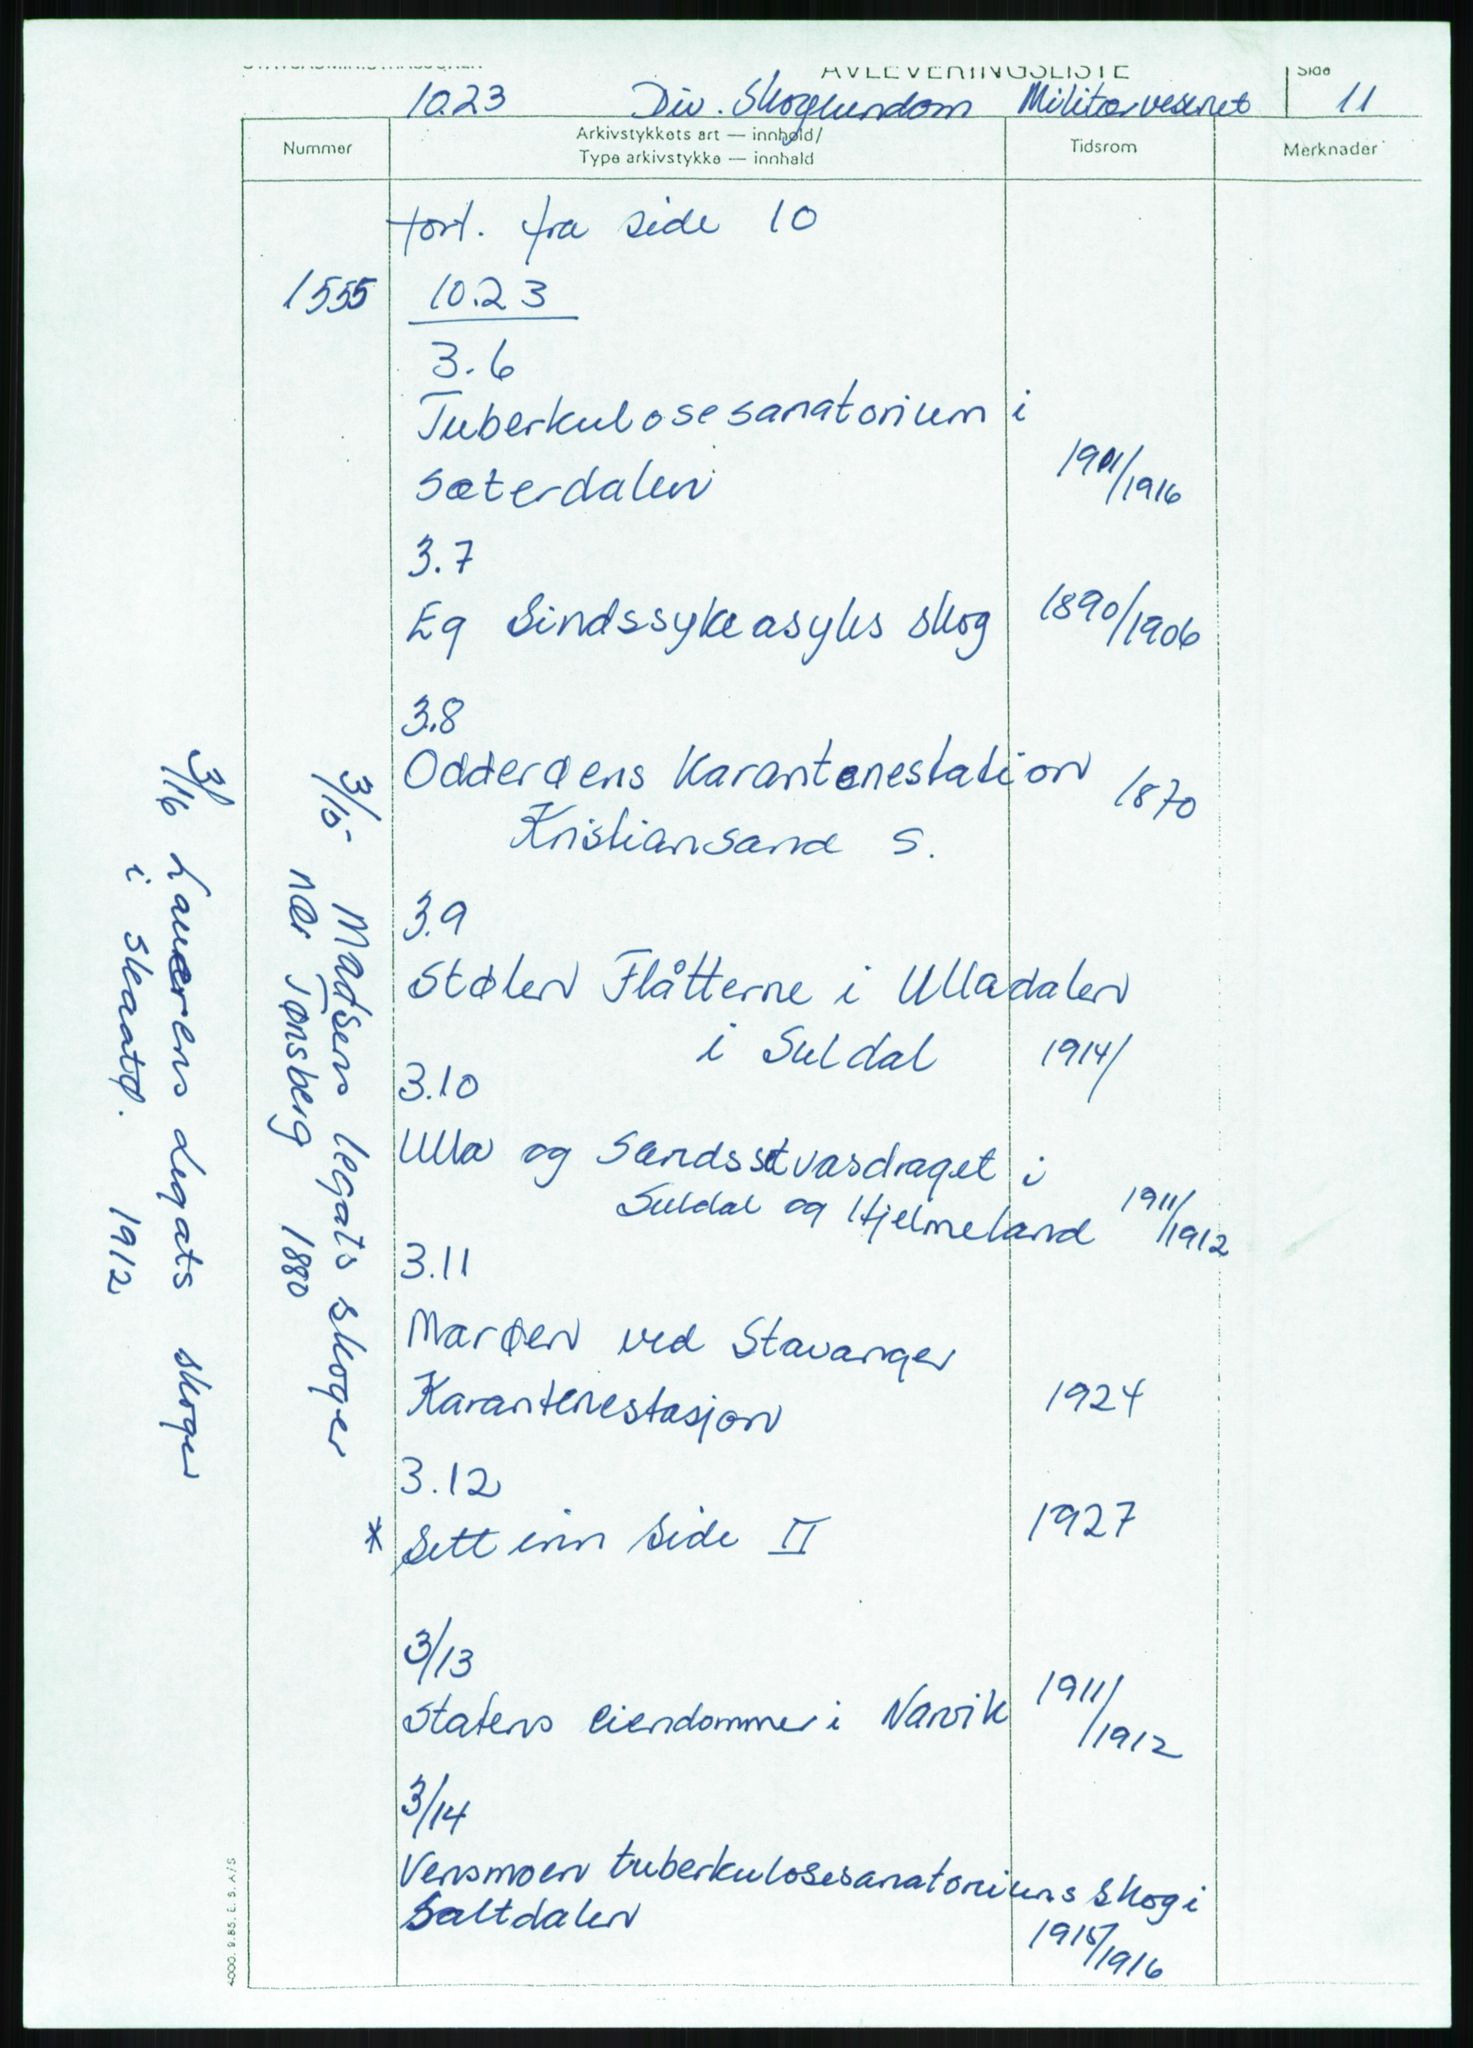 AVLEVERINGSLISTE
Side
10.23 Div. Skogeiendom Militærvesenet 11
Nummer
Arkivstykkets art — innhold/
Type arkivstykke — innhald
Tidsrom
Merknader
fort. fra side 10
1555 10.23
3.6
Tuberkulosesanatorium i
Sæterdalen 1901/1916
3.7
Eg Sindssykeasyls skog 1890/1906
3.8
Odderøens Karantenestation 1870
Kristiansand S.
3.9
Stølen Flåtterne i Ulladalen
i Suldal 1914/
3.10
Ulla og Sandsåvasdraget i
Suldal og Hjelmeland 1911/1912
3.11
Marøen ved Stavanger
Karantenestasjon 1924
3.12
* Sett inn side II 1927
3/13
Statens eiendommer i Narvik 1911/1912
3/14
Vensmoen tuberkulosesanatoriums skog i
Saltdalen 1915/1916
3/15 Madsens legats skoger
nær Tønsberg 1880
3/16 Laurens Legats skoger
i Skaatø. 1912
4000. 9.85. E. S. A/S